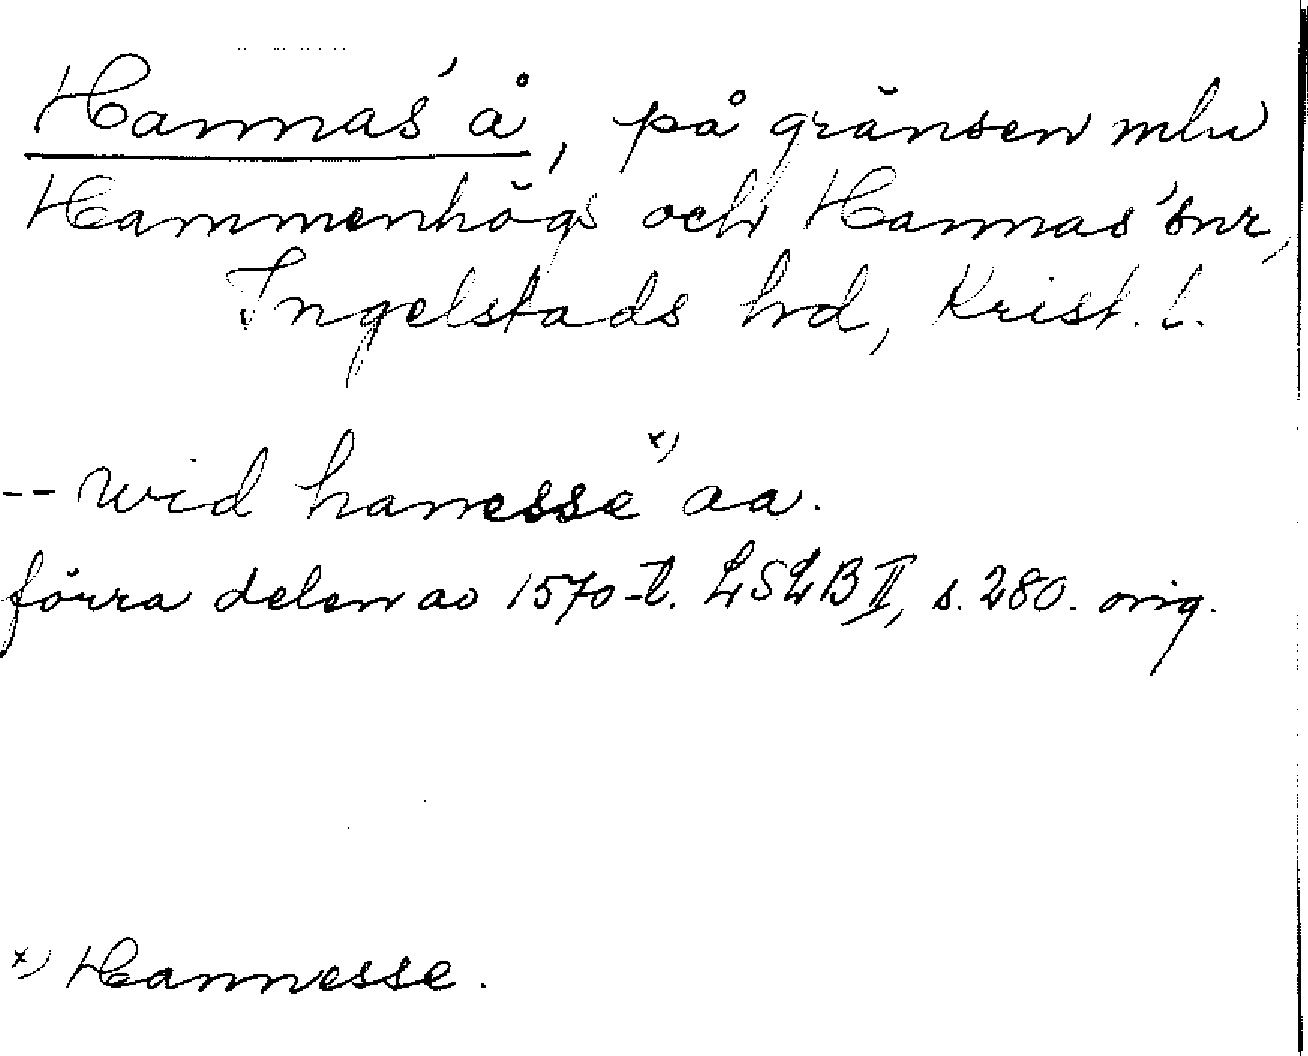 Hannas' å, på gränsen mlw
Hammenhögs och Hannas' snr,
Ingelstads hrd, Krist. l.
-- wid hanesse x) aa.
förra delen av 1570-t. LSLB II, s. 280. orig.
x) Hannesse.